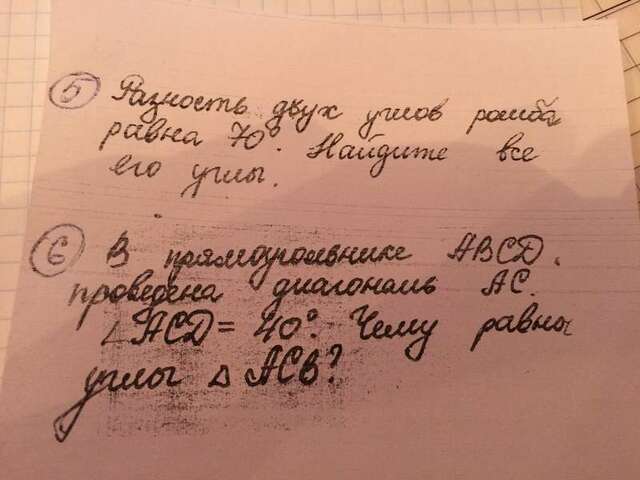 5 Разность двух углов ромба
равна 70°. Найдите все
его углы.
6 В прямоугольнике ABCD.
проведена диагональ AC.
∠ACD = 40°. Чему равны
углы △ ACB?